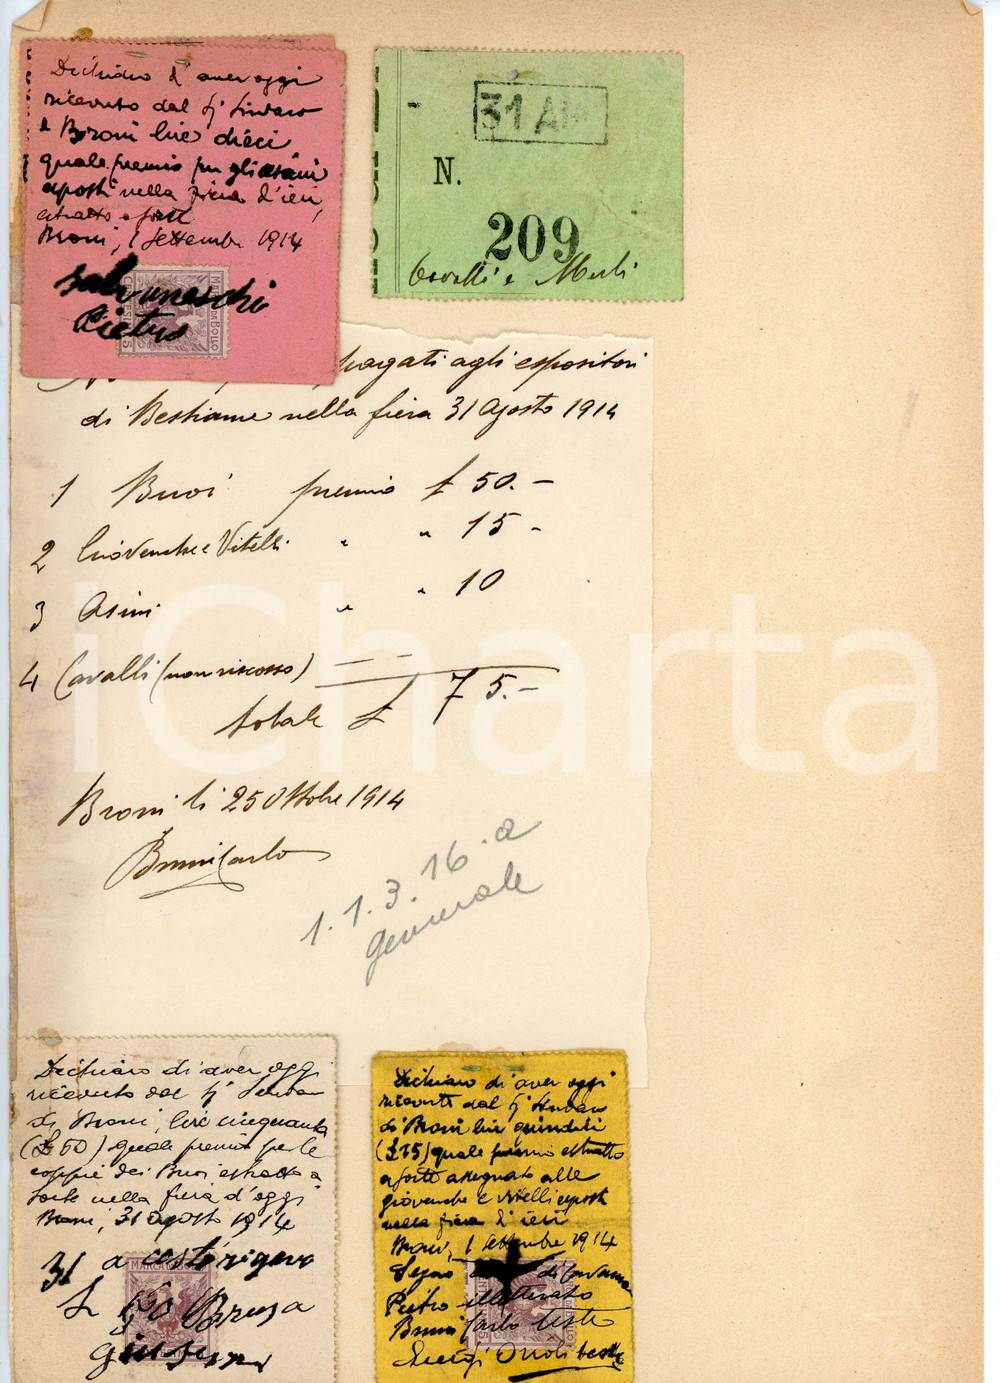 Dichiaro d'aver oggi
ricevuto dal Sig Sindaco
di Broni lire dieci
quale premio per gli asini
esposti nella fiera d'ieri,
estratto a sorte
Broni, 1 Settembre 1914
Salvaneschi
Pietro
MARCA DA BOLLO
31 AG
N.
209
Cavalli e Muli
pagati agli espositori
di Bestiame nella fiera 31 Agosto 1914
1 Buoi premio £ 50.-
2 Giovenche e Vitelli " " 15 -
3 Asini " " 10
4 Cavalli (non riscosso) — —
totale £ 75.-
Broni li 25 Ottobre 1914
Bruni Carlo
1.1.3.16.a
generale
iCharta
Dichiaro di aver oggi
ricevuto dal Sig Sindaco
di Broni, lire cinquanta
(£ 50) quale premio per le
coppie dei Buoi estratto a
sorte nella fiera d'oggi
Broni, 31 agosto 1914
31 a
MARCA DA BOLLO
Giuseppe
Dichiaro di aver oggi
ricevuto dal Sig Sindaco
di Broni lire quindici
(£ 15) quale premio estratto
a sorte assegnato alle
giovenche e vitelli esposti
nella fiera d'ieri
Broni, 1 settembre 1914
Segno di
Pietro illetterato
Bruni Carlo teste
Luigi teste